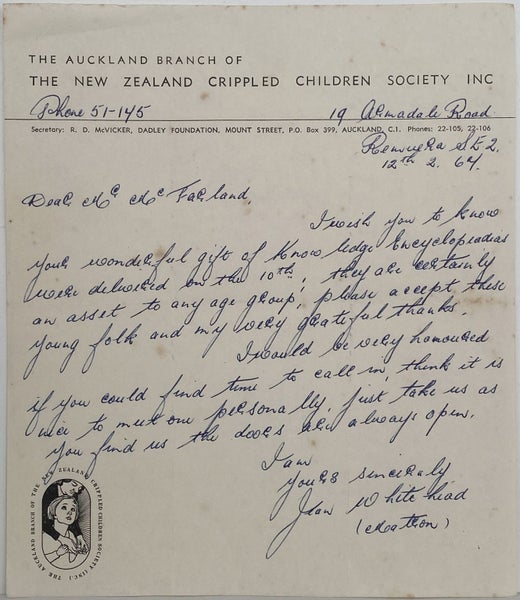 THE AUCKLAND BRANCH OF
THE NEW ZEALAND CRIPPLED CHILDREN SOCIETY INC
Phone 51-145 19 Armadale Road
Secretary: R. D. McVICKER, DADLEY FOUNDATION, MOUNT STREET, P.O. Box 399, AUCKLAND, C.1. Phones: 22-105, 22-106
Remuera SE2.
12th 2. 64.
Dear Mr Mc Farland,
I wish you to know
your wonderful gift of Knowledge Encyclopedias
were delivered on the 10th, they are certainly
an asset to any age group, please accept these
young folk and my very grateful thanks.
I would be very honoured
if you could find time to call in, think it is
nice to meet one personally, just take us as
you find us the doors are always open.
I am
yours sincerely
Jean Whitehead
(Matron)
THE AUCKLAND BRANCH OF THE NEW ZEALAND CRIPPLED CHILDREN SOCIETY (INC.)